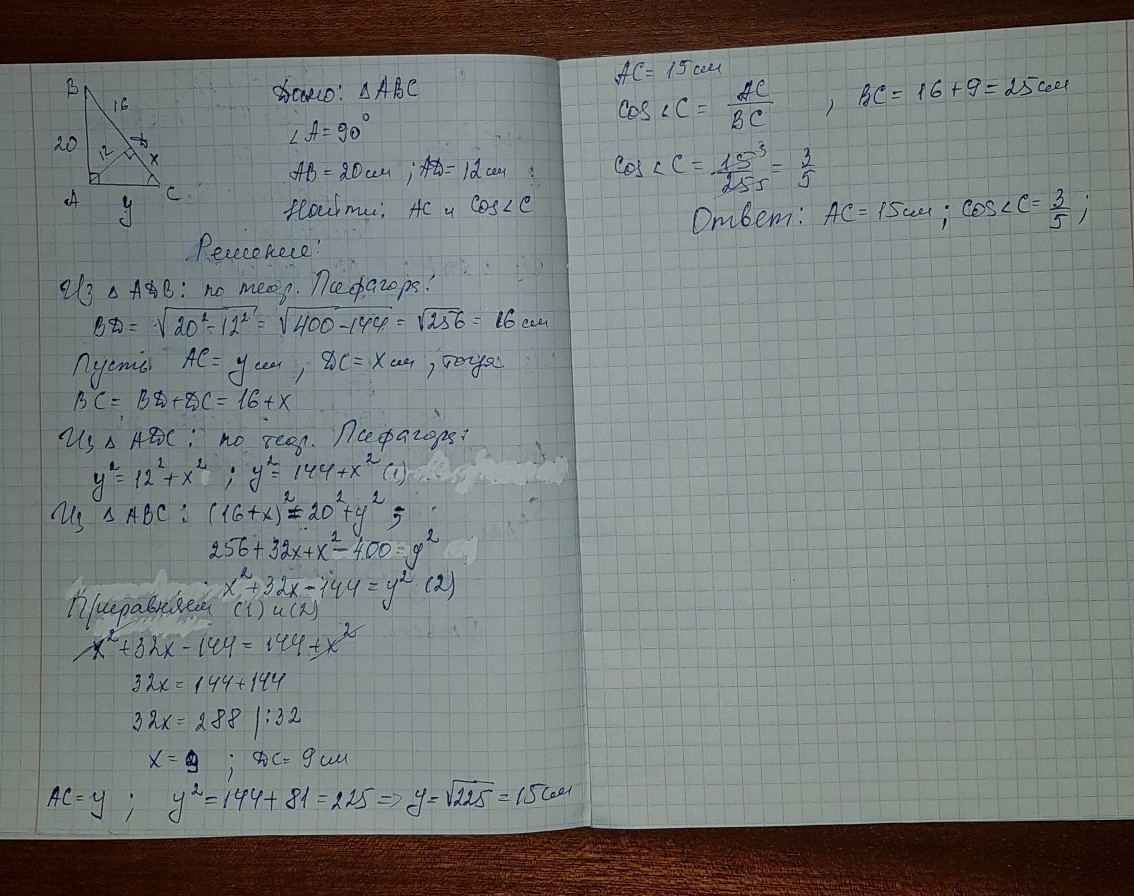 B
16
20
12
D
x
A
y
C
Дано: △ABC
∠A=90°
AB=20см ; AD=12см
Найти: AC и Cos∠C
Решение:
Из △ADB: по теор. Пифагора:
BD= √20²-12² = √400-144 = √256 = 16 см
Пусть AC= y см , DC= x см , тогда
BC= BD+DC= 16+x
Из △ADC: по теор. Пифагора:
y²=12²+x² ; y²= 144+x² (1)
Из △ABC: (16+x)²=20²+y² ;
256+32x+x²-400=y²
x²+32x-144=y² (2)
Приравняем (1) и (2)
x²+32x-144=144+x²
32x=144+144
32x=288 |:32
x=9 ; DC= 9см
AC=y ; y²=144+81=225 => y=√225=15см
AC=15см
Cos∠C= AC/BC , BC=16+9=25см
Cos∠C= 15 3/25 5 = 3/5
Ответ: AC=15см ; Cos∠C=3/5 ;